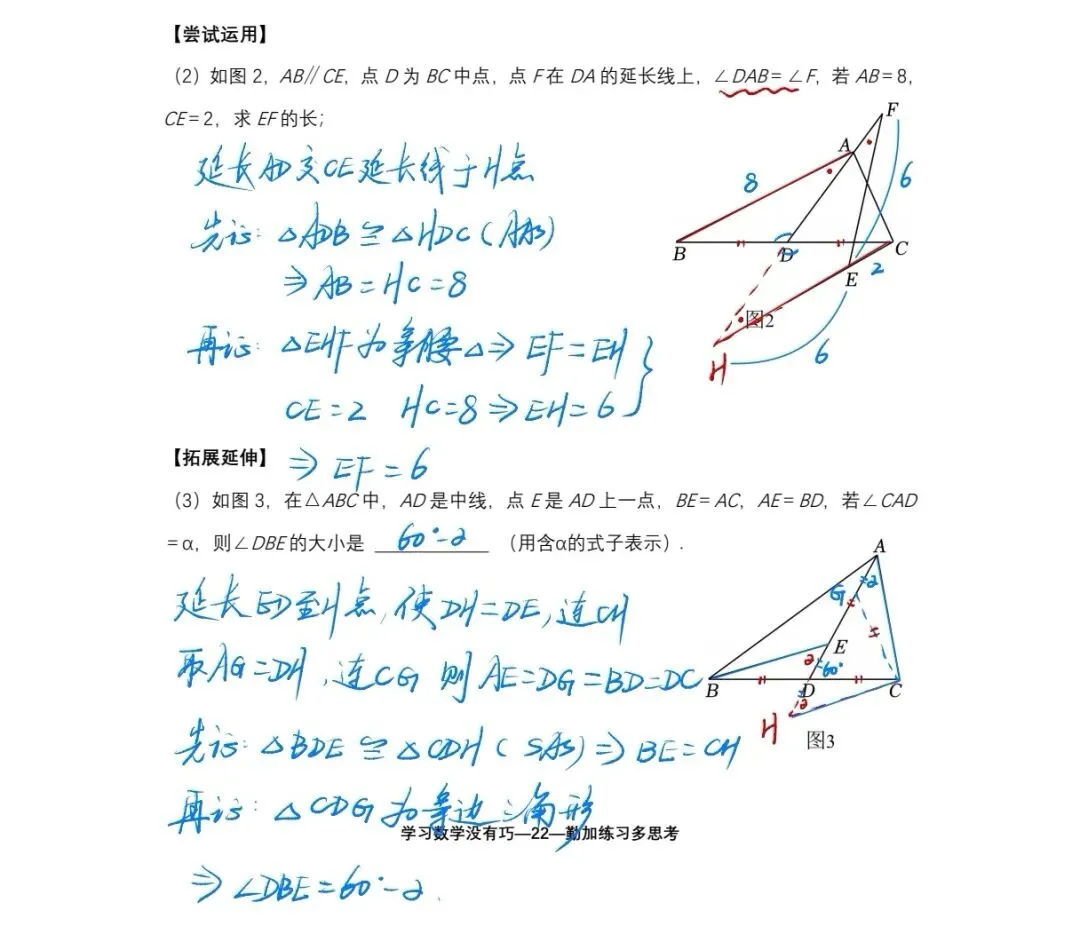 【尝试运用】
（2）如图 2，AB∥CE，点 D 为 BC 中点，点 F 在 DA 的延长线上，∠DAB=∠F，若 AB=8，
CE=2，求 EF 的长；
延长AD交CE延长线于H点
先证：△ADB≌△HDC（AAS）
⇒AB=HC=8
再证：△EHF为等腰△⇒EF=EH
CE=2 HC=8⇒EH=6 }
F
A
8
6
B
D
C
E
2
图2
H
6
【拓展延伸】 ⇒EF=6
（3）如图 3，在△ABC 中，AD 是中线，点 E 是 AD 上一点，BE=AC，AE=BD，若∠CAD
=α，则∠DBE 的大小是 60°-α （用含α的式子表示）.
延长ED至H点，使DH=DE，连CH
取AG=DH，连CG 则AE=DG=BD=DC
先证：△BDE≌△CDH（SAS）⇒BE=CH
再证：△CDG为等边三角形
⇒∠DBE=60°-α.
A
G
α
E
α
60°
B
D
C
α
H
图3
学习数学没有巧—22—勤加练习多思考